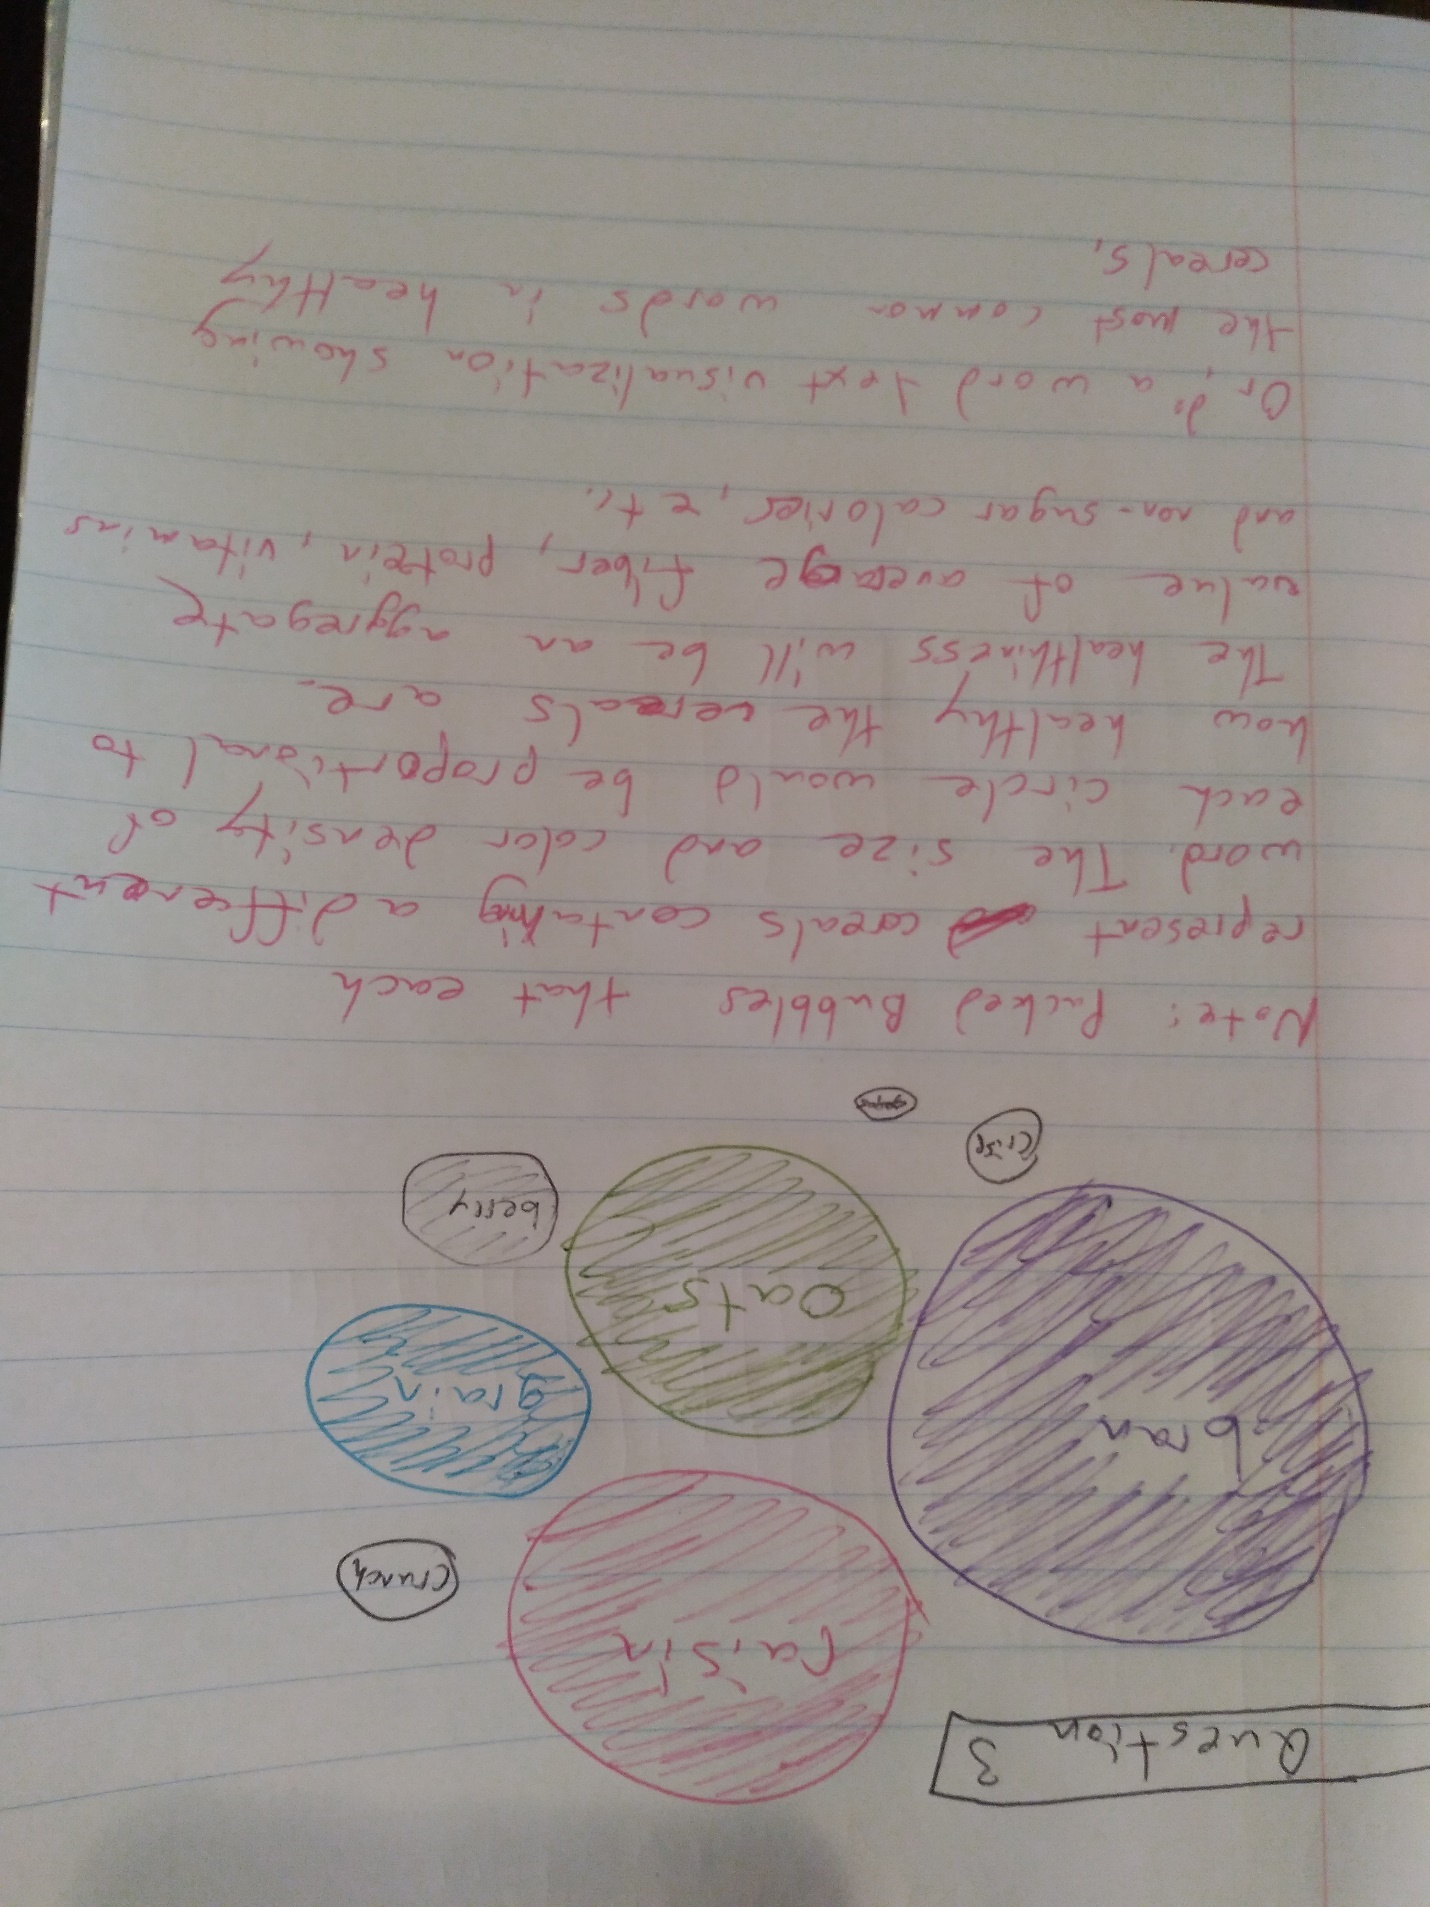 Question 3
raisin
crunch
bran
grain
oats
berry
crisp
Note: Packed Bubbles that each
represent cereals containg a different
word. The size and color density of
each circle would be proportional to
how healthy the cereals are.
The healthiness will be an aggregate
value of average fiber, protein, vitamins
and non-sugar calories, etc.
Or, do a word text visualization showing
the most common words in healthy
cereals.